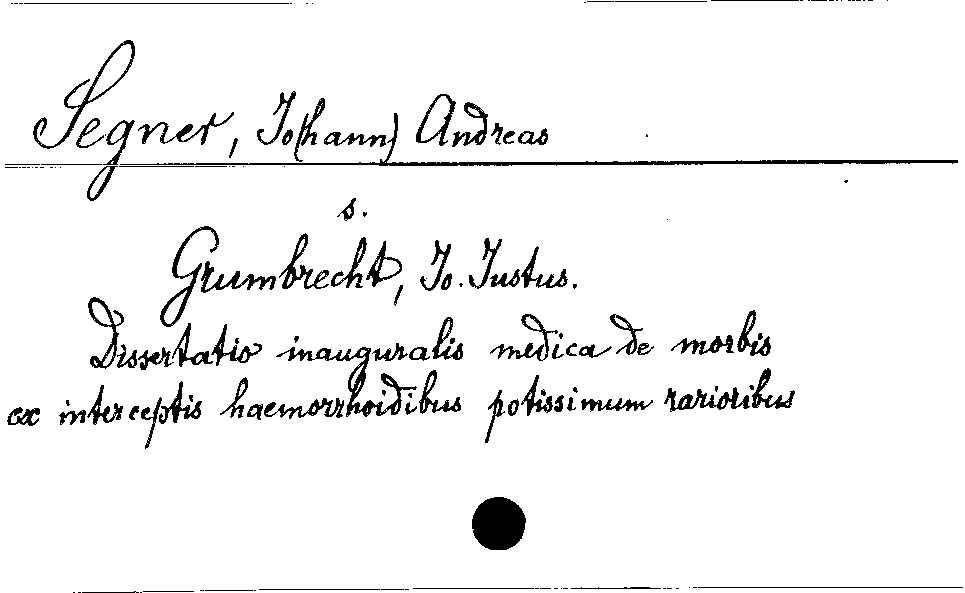 Segner, Jo(hann) Andreas
s.
Grumbrecht, Jo. Justus.
Dissertatio inauguralis medica de morbis
ex interceptis haemorrhoidibus potissimum rarioribus